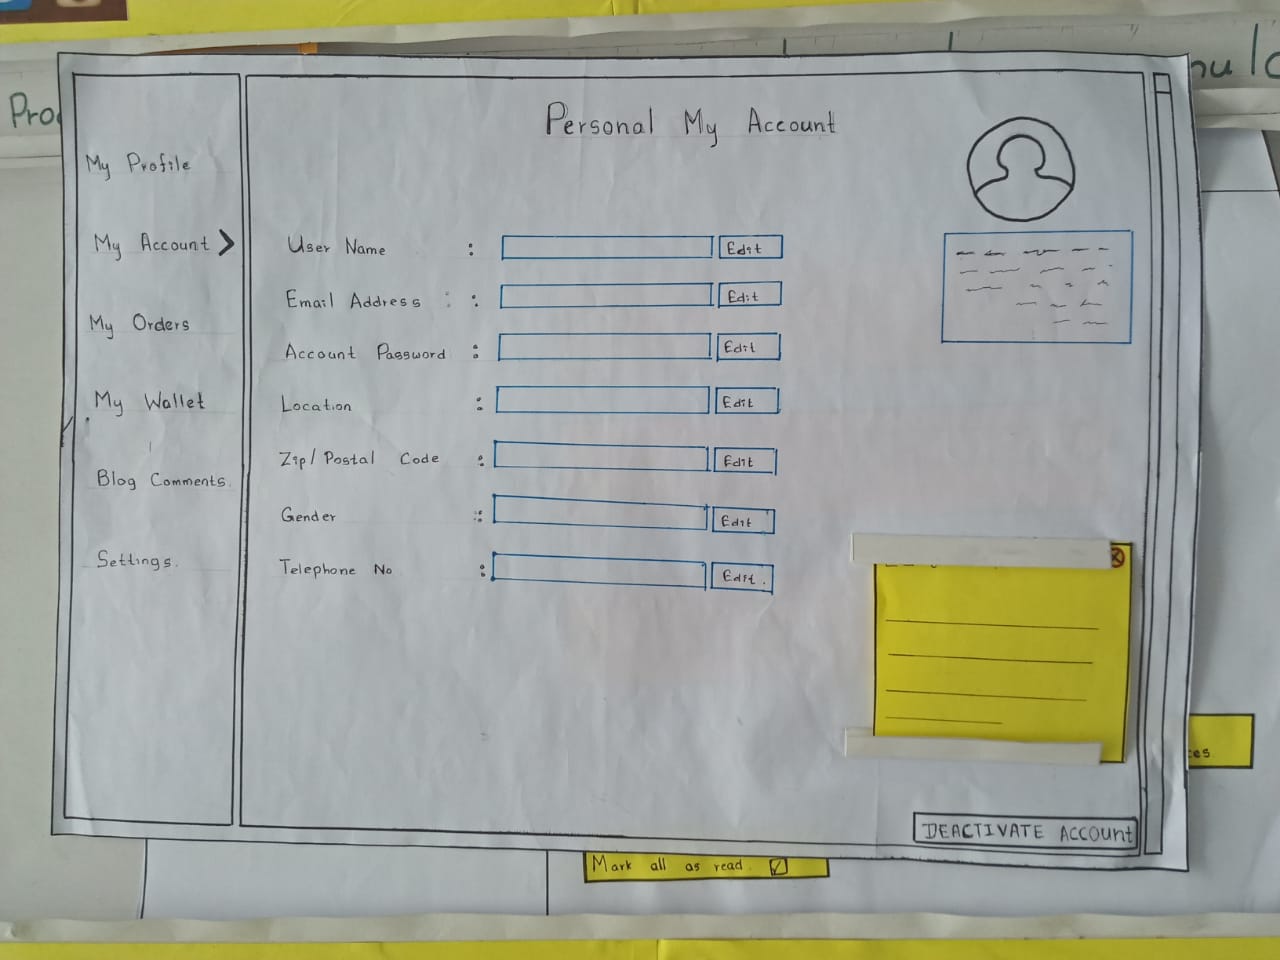 Personal My Account
My Profile
My Account >
My Orders
My Wallet
Blog Comments.
Settings.
User Name : Edit
Email Address : : Edit
Account Password : Edit
Location : Edit
Zip/Postal Code : Edit
Gender : Edit
Telephone No : Edit.
DEACTIVATE ACCOUNT
Mark all as read.